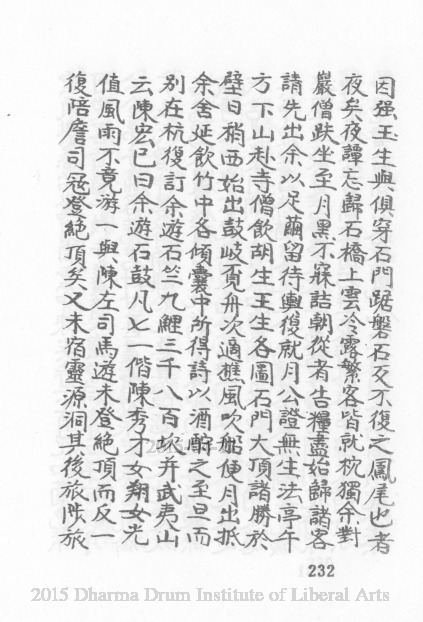 因强王生與俱穿石門踞磐石又不復之鳳尾也者
夜矣夜譚忘歸石橋上雲冷露繁客皆就枕獨余對
巖僧趺坐至月黑不寐詰朝從者告糧盡始歸諸客
請先出余以足繭留待輿復就月公證無生法亭午
方下山赴寺僧飲胡生王生各圖石門大頂諸勝於
壁日稍西始出鼓岐覓舟次適樵風吹船便月出抵
余舍延飲竹中各傾囊中所得詩以酒酹之至旦而
別在杭復訂余遊石竺九鯉三千八百坎并武夷山
云陳宏已曰余遊石鼓凡七一偕陳秀才女翔女光
值風雨不竟游一與陳左司馬遊未登絕頂而反一
復陪詹司寇登絕頂矣又未宿靈源洞其後旅陟旅
232
2015 Dharma Drum Institute of Liberal Arts